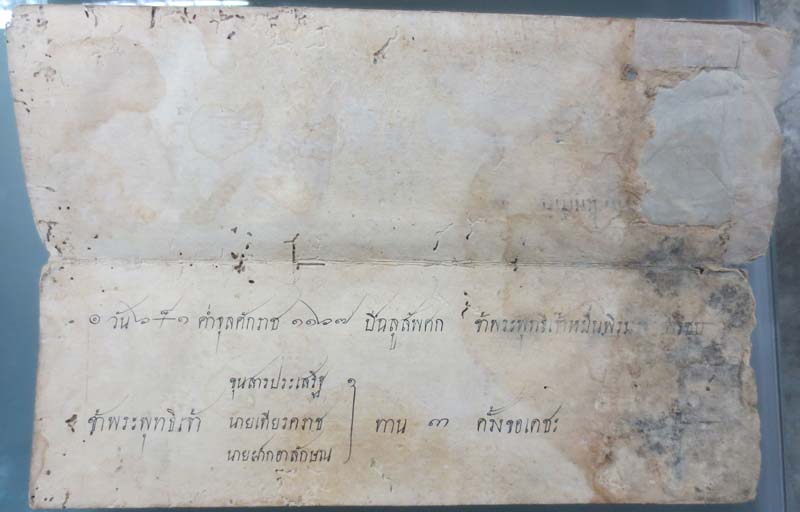 ๏ วัน ๖ ๑ ค่ำจุลศักราช ๑๑๖๗ ปีฉลูสัพศก ข้าพระพุทธิเจ้าหมื่นพิรม
ขุนสารประเสริฐ
ข้าพระพุทธิเจ้า นายเทียรฆราช ทาน ๓ ครั้งขอเดชะ
นายฝาทอาลักษณ